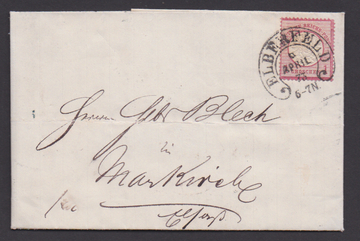 ELBERFELD
6
APRIL
6-7N.
Herren Gebr Blech
in
Markirch
Elsass